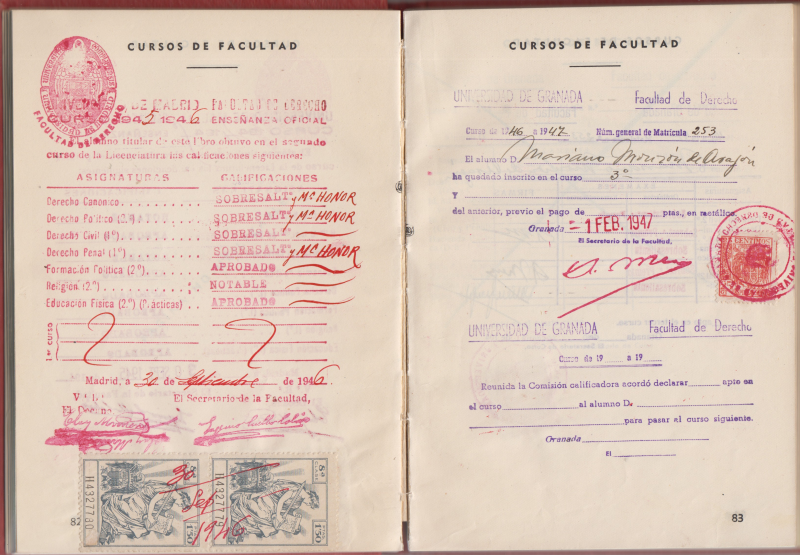 CURSOS DE FACULTAD
UNIVERSIDAD DE MADRID FACULTAD DE DERECHO
CURSO 1945 1946 ENSEÑANZA OFICIAL
FACULTAD DE DERECHO
titular de este libro obtuvo en el segundo
curso de la Licenciatura las calificaciones siguientes:
ASIGNATURAS CALIFICACIONES
Derecho Canónico SOBRESALTE y Mª HONOR
Derecho Político (2.º) SOBRESALTE y Mª HONOR
Derecho Civil (1º) SOBRESALTE
Derecho Penal (1º) SOBRESALTE y Mª HONOR
Formación Política (2º) APROBADO
Religión (2.º) NOTABLE
Educación Física (2.º) (Prácticas) APROBADO
1.er curso
Madrid, a 30 de Septiembre de 1946
El Secretario de la Facultad,
El Decano
H4327780
H4327779
8ª
1'50
1'50
30
Sep
1946
82
CURSOS DE FACULTAD
UNIVERSIDAD DE GRANADA Facultad de Derecho
Curso de 1946 a 1947 Núm. general de Matrícula 253
El alumno D. Mariano Monzón de Aragón
ha quedado inscrito en el curso 3º
Y
del anterior, previo el pago de ptas., en metálico.
Granada -1 FEB. 1947
El Secretario de la Facultad,
UNIVERSIDAD DE GRANADA Facultad de Derecho
Curso de 19 a 19
Reunida la Comisión calificadora acordó declarar apto en
el curso al alumno D.
para pasar al curso siguiente.
Granada
El
83